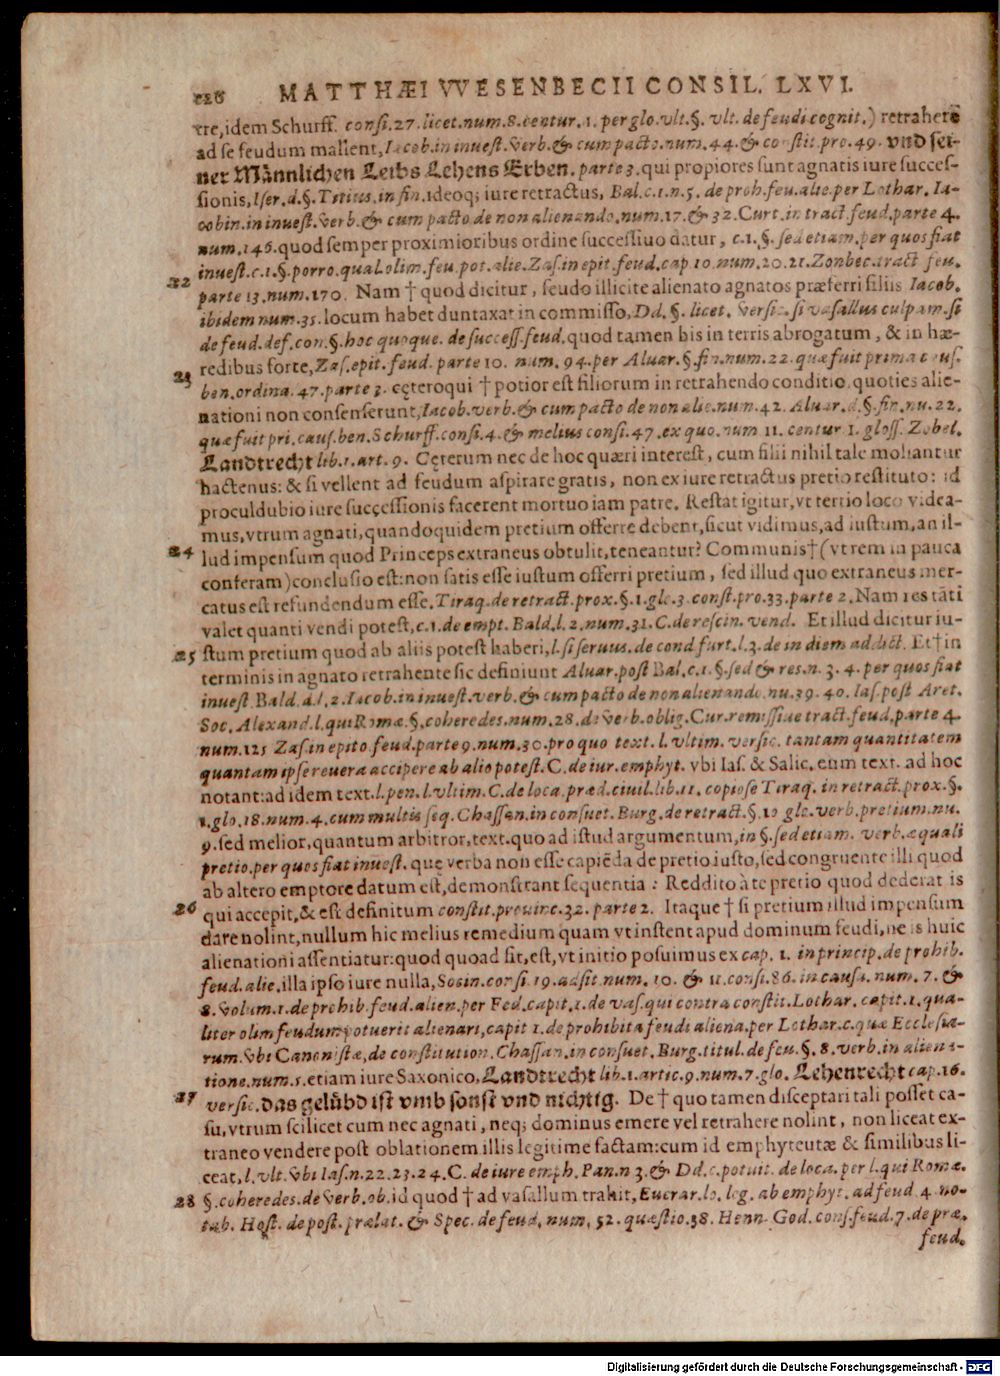 226 MATTHÆI VVESENBECII CONSIL. LXVI.
tre, idem Schurff. consi. 27. licet. num. 8. centur. 1. per glo. vlt. §. vlt. de feudi cognit.) retrahere
ad se feudum mallent, Iacob. in inuest. verb. & cum pacto. num. 44. & constit. pro. 49. vnd sei-
ner Männlichen Leibs Lehens Erben. parte 3. qui propiores sunt agnatis iure succes-
sionis, Iser. d. §. Titius, in fin. ideoq; iure retractus, Bal. c. 1. n. 5. de proh. feu. alie. per Lothar. Ia-
cobin. in inuest. verb. & cum pacto de non alienando, num. 17. & 32. Curt. in tract. feud. parte 4.
num. 146. quod semper proximioribus ordine successiuo datur, c. 1. §. sed etiam. per quos fiat
inuest. c. 1. §. porro. qual. olim. feu. pot. alie. Zas. in epit. feud. cap. 10. num. 20. 21. Zonbec. tract. feu.
22 parte 13. num. 170. Nam † quod dicitur, feudo illicite alienato agnatos præferri filiis Iacob.
ibidem num. 35. locum habet duntaxat in commisso, Dd. §. licet. versic. si vasallus culpam. si
de feud. def. con. §. hoc quoque. de success. feud. quod tamen his in terris abrogatum, & in hæ-
redibus forte, Zas. epit. feud. parte 10. num. 94. per Aluar. §. fin. num. 22. quæ fuit prima caus.
23 ben. ordina. 47. parte 3. cęteroqui † potior est filiorum in retrahendo conditio, quoties alie-
nationi non consenserunt, Iacob. verb. & cum pacto de non alie. num. 42. Aluar. d. §. fin. nu. 22.
quæ fuit pri. caus. ben. Schurff. consi. 4. & melius consi. 47. ex quo. num 11. centur 1. gloss. Zobel.
Landtrecht lib. 1. art. 9. Cęterum nec de hoc quæri interest, cum filii nihil tale moliantur
hactenus: & si vellent ad feudum aspirare gratis, non ex iure retractus pretio restituto: id
proculdubio iure succęssionis facerent mortuo iam patre. Restat igitur, vt tertio loco videa-
mus, vtrum agnati, quandoquidem pretium offerre debent, sicut vidimus, ad iustum, an il-
24 lud impensum quod Princeps extraneus obtulit, teneantur? Communis † (vt rem in pauca
conferam) conclusio est: non satis esse iustum offerri pretium, sed illud quo extraneus mer-
catus est refundendum esse. Tiraq. de retract. prox. §. 1. glo. 3. const. pro. 33. parte 2. Nam res tāti
valet quanti vendi potest, c. 1. de empt. Bald. l. 2. num. 31. C. de rescin. vend. Et illud dicitur iu-
25 stum pretium quod ab aliis potest haberi, l. si seruus. de cond furt. l. 3. de in diem ad dict. Et † in
terminis in agnato retrahente sic definiunt Aluar. post Bal. c. 1. §. sed & res. n. 3. 4. per quos fiat
inuest. Bald. d. l. 2. Iacob. in inuest. verb. & cum pacto de non alienando. nu. 39. 40. Ias. post Aret.
Soc. Alexand. l. qui Romæ. §. coheredes. num. 28. de verb. oblig. Cur. remissiue tract. feud. parte 4.
num. 125 Zas. in epito. feud. parte 9. num. 30. pro quo text. l. vltim. versic. tantam quantitatem
quantam ipse reuera accipere ab alio potest. C. de iur. emphyt. vbi Ias. & Salic. eum text. ad hoc
notant: ad idem text. l. pen. l. vltim. C. de loca. præd. ciuil. lib. 11. copiose Tiraq. in retract. prox. §.
1. glo. 18. num. 4. cum multis seq. Chassan. in consuet. Burg. de retract. §. 10 glo. verb. pretium. nu.
9. sed melior, quantum arbitror, text. quo ad istud argumentum, in §. sed etiam. verb. æquali
pretio. per quos fiat inuest. quę verba non esse capiēda de pretio iusto, sed congruente illi quod
ab altero emptore datum est, demonstrant sequentia: Reddito à te pretio quod dederat is
26 qui accepit, & est definitum constit. prouinc. 32. parte 2. Itaque † si pretium illud impensum
dare nolint, nullum hic melius remedium quam vt instent apud dominum feudi, ne is huic
alienationi assentiatur: quod quoad sit, est, vt initio posuimus ex cap. 1. in princip. de prohib.
feud. alie. illa ipso iure nulla, Socin. consi. 19. adsit. num. 10. & 11. consi. 86. in causa. num. 7. &
8. volum. 1. de prohib. feud. alien. per Fed. capit. 1. de vas. qui contra constit. Lothar. capit. 1. qua-
liter olim feudum potuerit alienari, capit 1. de prohibita feudi aliena. per Lothar. c. quæ Ecclesia-
rum. vbi Canonistæ, de constitution. Chassan. in consuet. Burg. titul. de feu. §. 8. verb. in aliena-
tione. num. 5. etiam iure Saxonico, Landtrecht lib. 1. artic. 9. num. 7. glo. Lehenrecht cap. 16.
27 versic. das gelübd ist vmb sonst vnd nichtig. De † quo tamen disceptari tali posset ca-
su, vtrum scilicet cum nec agnati, neq; dominus emere vel retrahere nolint, non liceat ex-
traneo vendere post oblationem illis legitime factam: cum id emphyteutæ & similibus li-
ceat, l. vlt. vbi Ias. n. 22. 23. 24. C. de iure emph. Pan. n 3. & Dd. c. potuit. de loca. per l. qui Romæ.
28 §. coheredes. de verb. ob. id quod † ad vasallum trahit, Euerar. lo. leg. ab emphyt. ad feud. 4. no-
tab. Host. de post. prælat. & Spec. de feud. num. 52. quæstio. 38. Henn. God. cons. feud. 7. de præ.
feud.
Digitalisierung gefördert durch die Deutsche Forschungsgemeinschaft - DFG